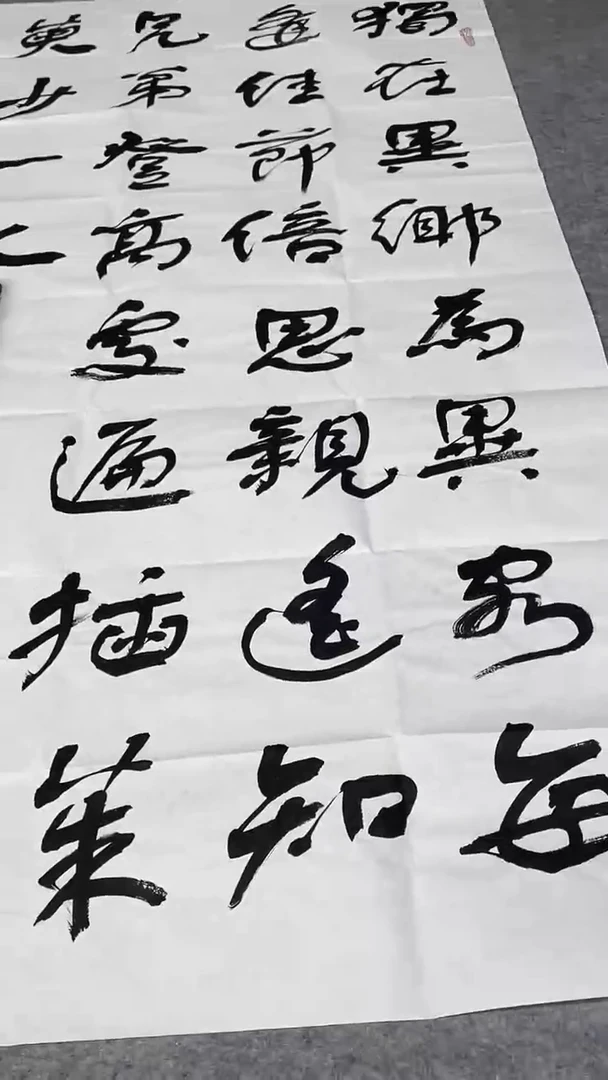 獨在異鄉為異客每
逢佳節倍思親遙知
兄弟登高處遍插茱
萸少一人